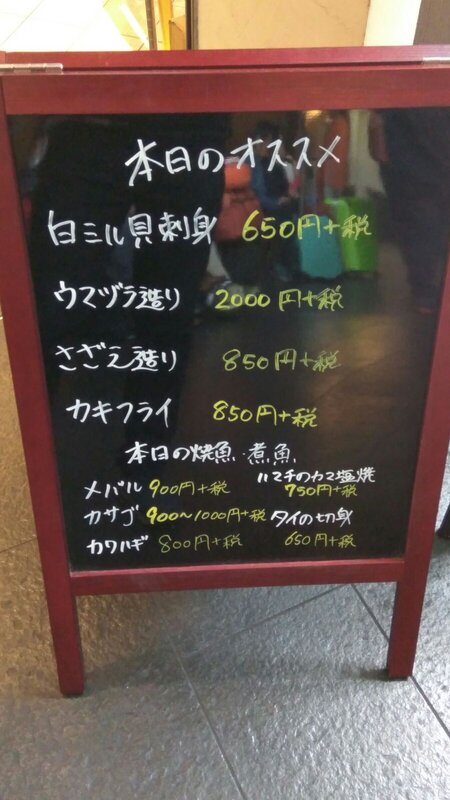 本日のオススメ
白ミル貝刺身 650円+税
ウマヅラ造り 2000円+税
さざえ造り 850円+税
カキフライ 850円+税
本日の焼魚・煮魚
メバル 900円+税
カサゴ 900〜1000円+税
カワハギ 800円+税
ハマチのカマ塩焼
750円+税
タイの切身
650円+税